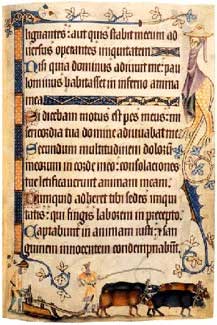 lignantes: aut quis stabit mecum ad
uersus operantes iniquitatem
Nisi quia dominus adiuuit me: pau
lominus habitasset in inferno anima
mea
Si dicebam motus est pes meus: mi
sericordia tua domine adiuuabat me
Secundum multitudinem dolorum
meorum in corde meo: consolaciones
tue letificauerunt animam meam.
Nunquid adheret tibi sedes iniqui
tatis: qui fingis laborem in precepto.
Captabunt in animam iusti: ⁊ san
guinem innocentem condempnabunt.